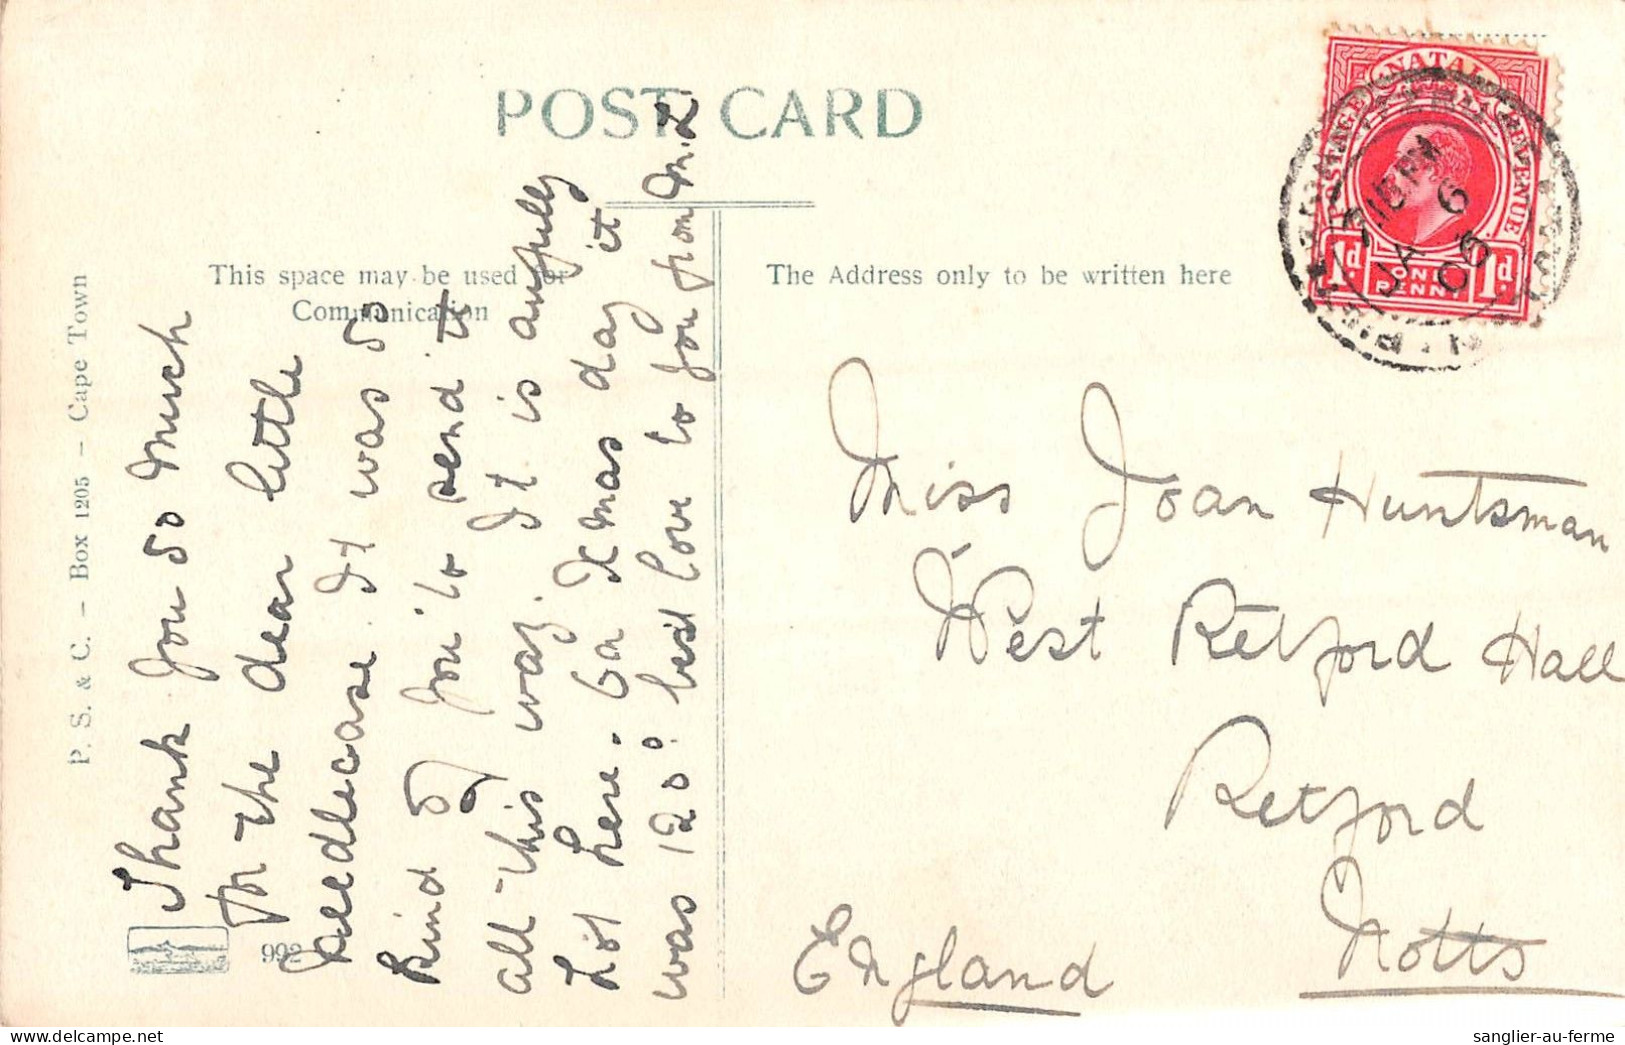 POST CARD
This space may be used for
Communication
The Address only to be written here
P. S. & C. – Box 1205 – Cape Town
992
Thank you so much
for the dear little
needlecase. It was so
kind of you to send it
all this way. It is awfully
hot here. on Xmas day it
was 120°. best love to you from M.L
Miss Joan Huntsman
West Retford Hall
Retford
Notts
England
NATAL
POSTAGE REVENUE
1d ONE PENNY 1d
JA 6
06
sanglier-au-ferme